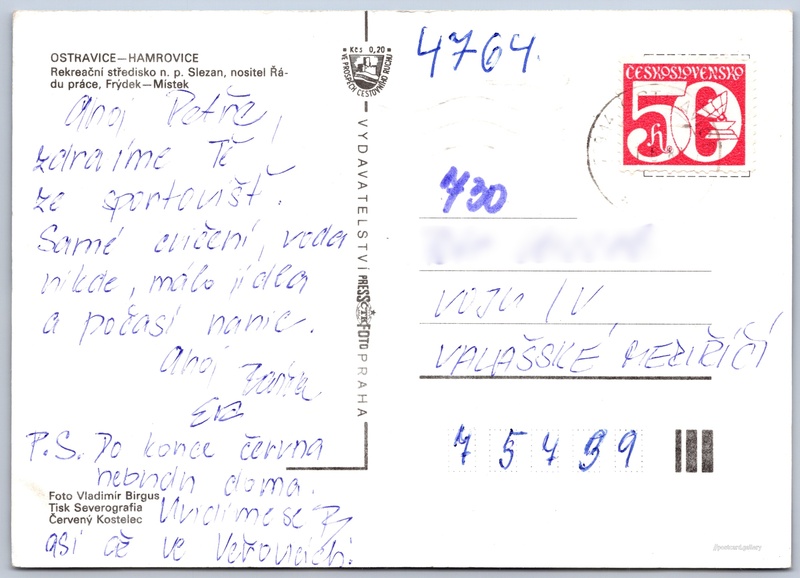 OSTRAVICE—HAMROVICE
Rekreační středisko n. p. Slezan, nositel Řá-
du práce, Frýdek—Místek
Ahoj Petře,
zdravíme Tě
ze sportovišť.
Samé cvičení, voda
nikde, málo jídla
a počasí nanic.
Ahoj
P.S. Do konce června
nebudu doma.
Uvidíme se
asi až ve Veřovicích.
Foto Vladimír Birgus
Tisk Severografia
Červený Kostelec
Kčs 0,20
VE PROSPĚCH CESTOVNÍHO RUCHU
VYDAVATELSTVÍ PRESSFOTO PRAHA
ČTK
4764.
ČESKOSLOVENSKO
50 h
730
VALAŠSKÉ MEZIŘÍČÍ